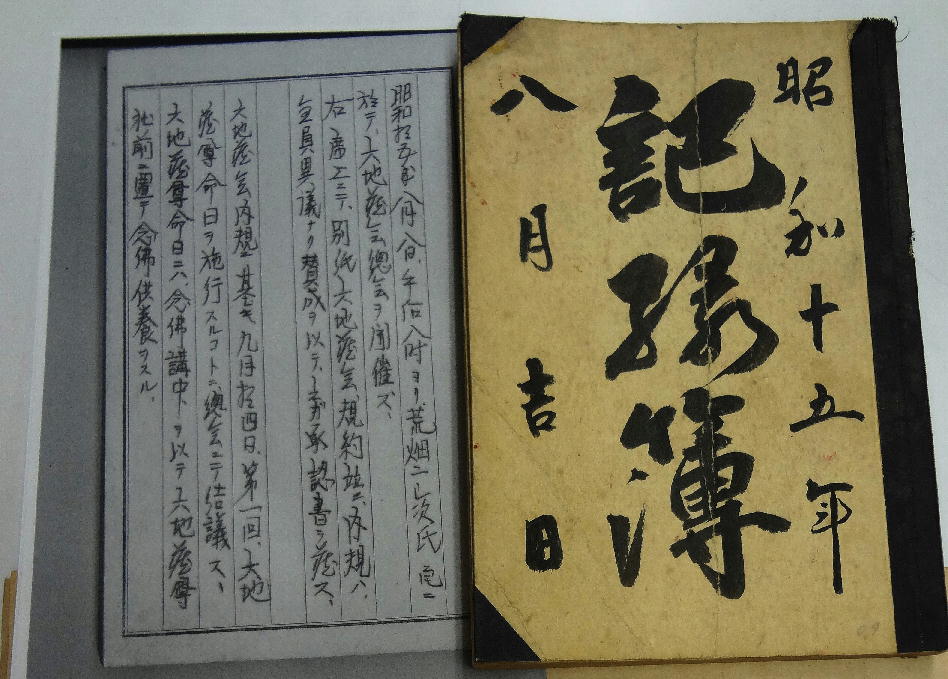 昭和十五年
記録簿
八月吉日
昭和拾五年八月八日、午后八時ヨリ、荒畑二
氏宅ニ
於テ、大地蔵会總会ヲ開催ス、
右席上ニテ、別紙大地蔵会規約並ニ内規ハ、
全員異議ナク賛成ヲ以テ、承認書ヲ蔵ス、
大地蔵会内規ニ基キ九月拾四日、第一回、大地
蔵尊命日ヲ施行スルコトニ總会ニテ決議ス、
大地蔵尊命日ニハ、念佛講中ヲ以テ大地蔵尊
社前ニ置テ念佛供養ヲスル、